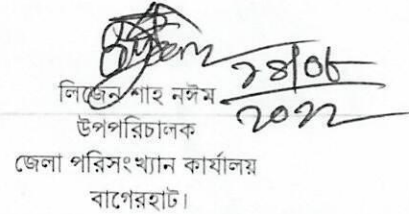 ২৪/০৮
২০২২
লিজেন শাহ নঈম
উপপরিচালক
জেলা পরিসংখ্যান কার্যালয়
বাগেরহাট।